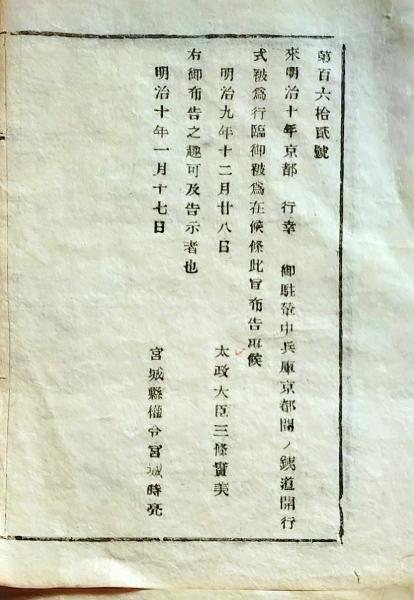 第百六拾貳號
來明治十年京都　行幸　御駐輦中兵庫京都間ノ鐵道開行
式被爲行臨御被爲在候條此旨布告候
明治九年十二月廿八日
太政大臣三條實美
右御布告之趣可及告示者也
明治十年一月十七日
宮城縣權令宮城時亮